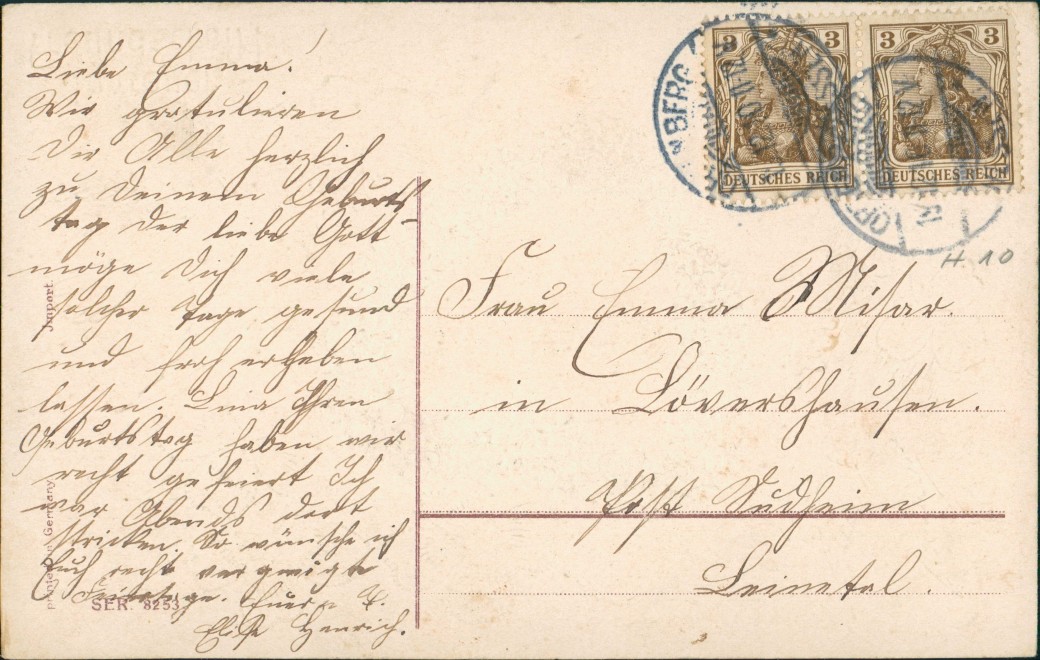 Liebe Emma!
Wir gratulieren
Dir Alle herzlich
zu Deinem Geburts
tag der liebe Gott
möge Dich viele
solcher Tage gesund
und froh erleben
lassen. Lina Ihren
Geburtstag haben wir
recht gefeiert Ich
war Abends dort
stricken. So wünsche ich
Euch recht vergnügte
Feiertage. Eure
Elise Henrich.
Import.
printed in Germany
SER. 8253
3 3
DEUTSCHES REICH
3 3
DEUTSCHES REICH
BERG
H. 10
Frau Emma Misar.
in Lövershausen.
Post Sudheim
Leinetal.